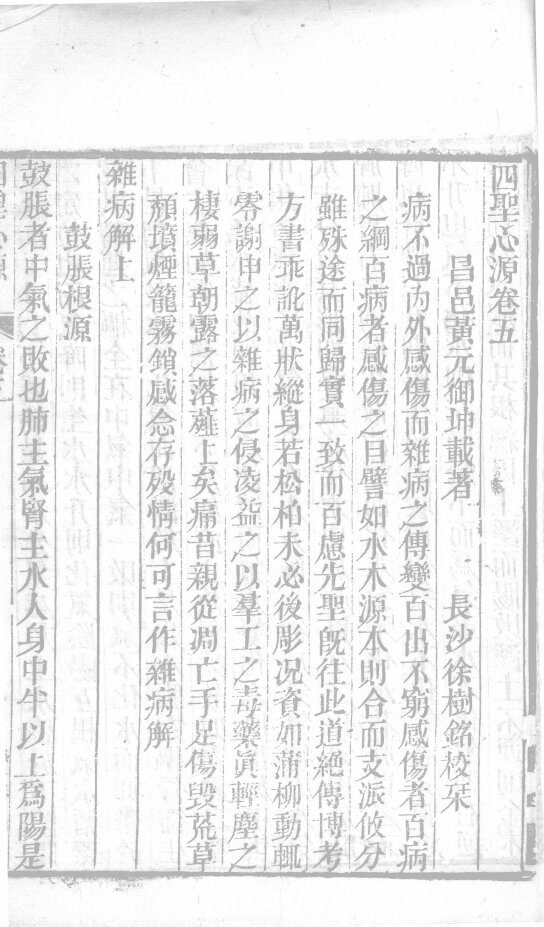 四聖心源卷五
昌邑黃元御坤載著　長沙徐樹銘校栞
病不過內外感傷而雜病之傳變百出不窮感傷者百病
之綱百病者感傷之目譬如水木源本則合而支派攸分
雖殊途而同歸實一致而百慮先聖旣往此道絕傳博考
方書乖訛萬狀縱身若松柏未必後彫况資如蒲柳動輒
零謝申之以雜病之侵凌益之以羣工之毒藥眞輕塵之
棲弱草朝露之落薤上矣痛昔親從凋亡手足傷毀荒草
頹墳煙籠霧鎖感念存歿情何可言作雜病解
雜病解上
鼓脹根源
鼓脹者中氣之敗也肺主氣腎主水人身中半以上爲陽是
四聖心源
卷五